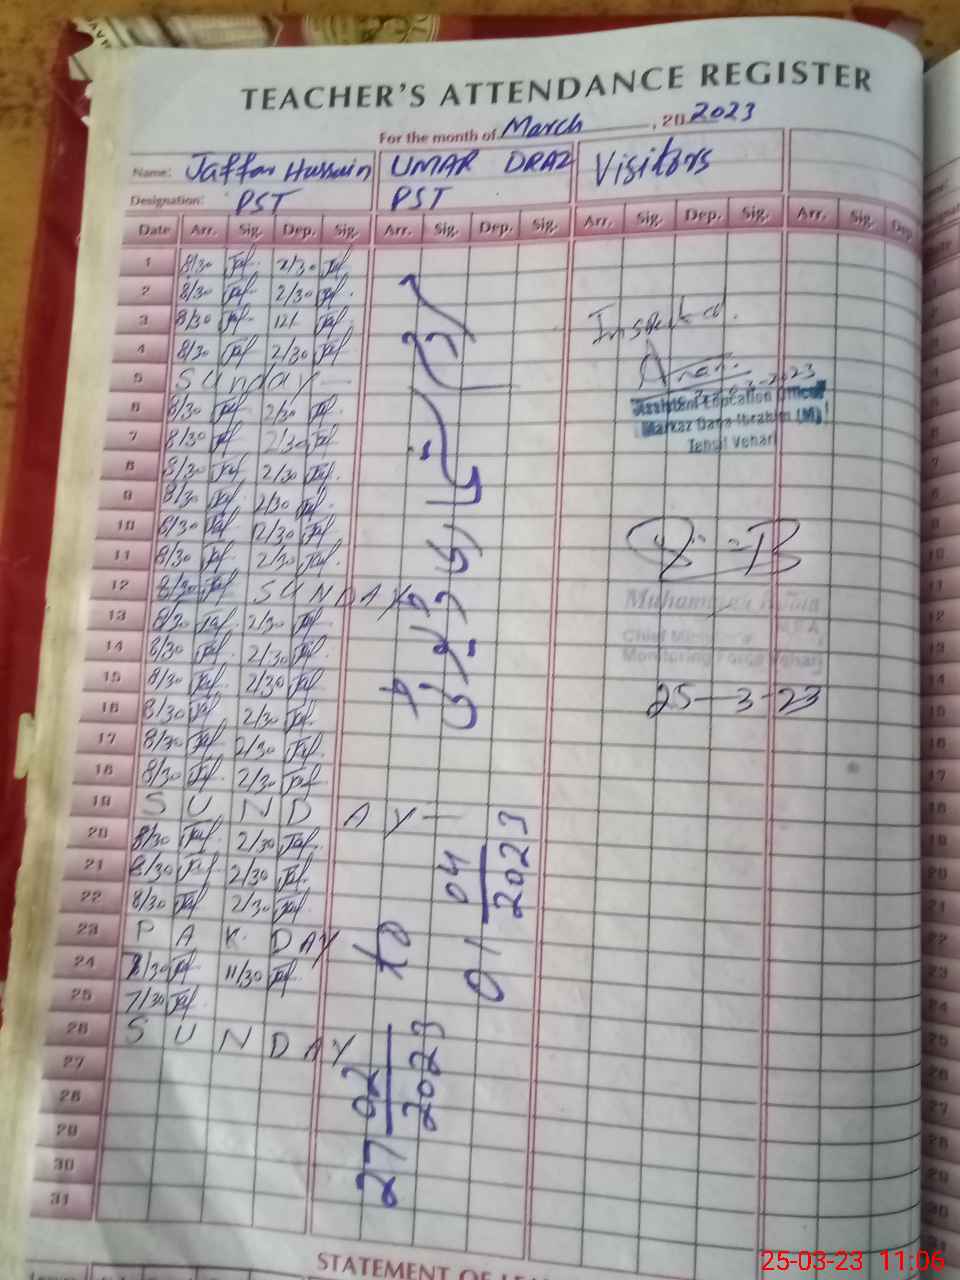 TEACHER'S ATTENDANCE REGISTER
For the month of March, 20 2023
Name: Jaffar Hussain UMAR DRAZ Visitors
Designation: PST PST
Date Arr. Sig. Dep. Sig. Arr. Sig. Dep. Sig. Arr. Sig. Dep. Sig. Arr. Sig. Dep
1 8/30 Jaf 2/30 Jaf
2 8/30 Jaf 2/30 Jaf
3 8/30 Jaf 12/- Jaf
4 8/30 Jaf 2/30 Jaf
5 Sunday
6 8/30 Jaf 2/30 Jaf
7 8/30 Jaf 2/30 Jaf
8 8/30 Jaf 2/30 Jaf
9 8/30 Jaf 2/30 Jaf
10 8/30 Jaf 2/30 Jaf
11 8/30 Jaf 2/30 Jaf
12 8/30 Jaf SUNDAY
13 8/30 Jaf 2/30 Jaf
14 8/30 Jaf 2/30 Jaf
15 8/30 Jaf 2/30 Jaf
16 8/30 Jaf 2/30 Jaf
17 8/30 Jaf 2/30 Jaf
18 8/30 Jaf 2/30 Jaf
19 SUNDAY
20 8/30 Jaf 2/30 Jaf
21 8/30 Jaf 2/30 Jaf
22 8/30 Jaf 2/30 Jaf
23 PAK DAY
24 8/30 Jaf 11/30 Jaf
25 7/30 Jaf
26 SUNDAY
27
28
29
30
31
27 02/2023 to 01 04/2023
Inspected.
Assistant Education Officer
Markaz Ibrahim (M)
Tehsil Vehari
Muhammad
Chief
Monitoring Force Vehari
25-3-23
STATEMENT OF
25-03-23 11:06